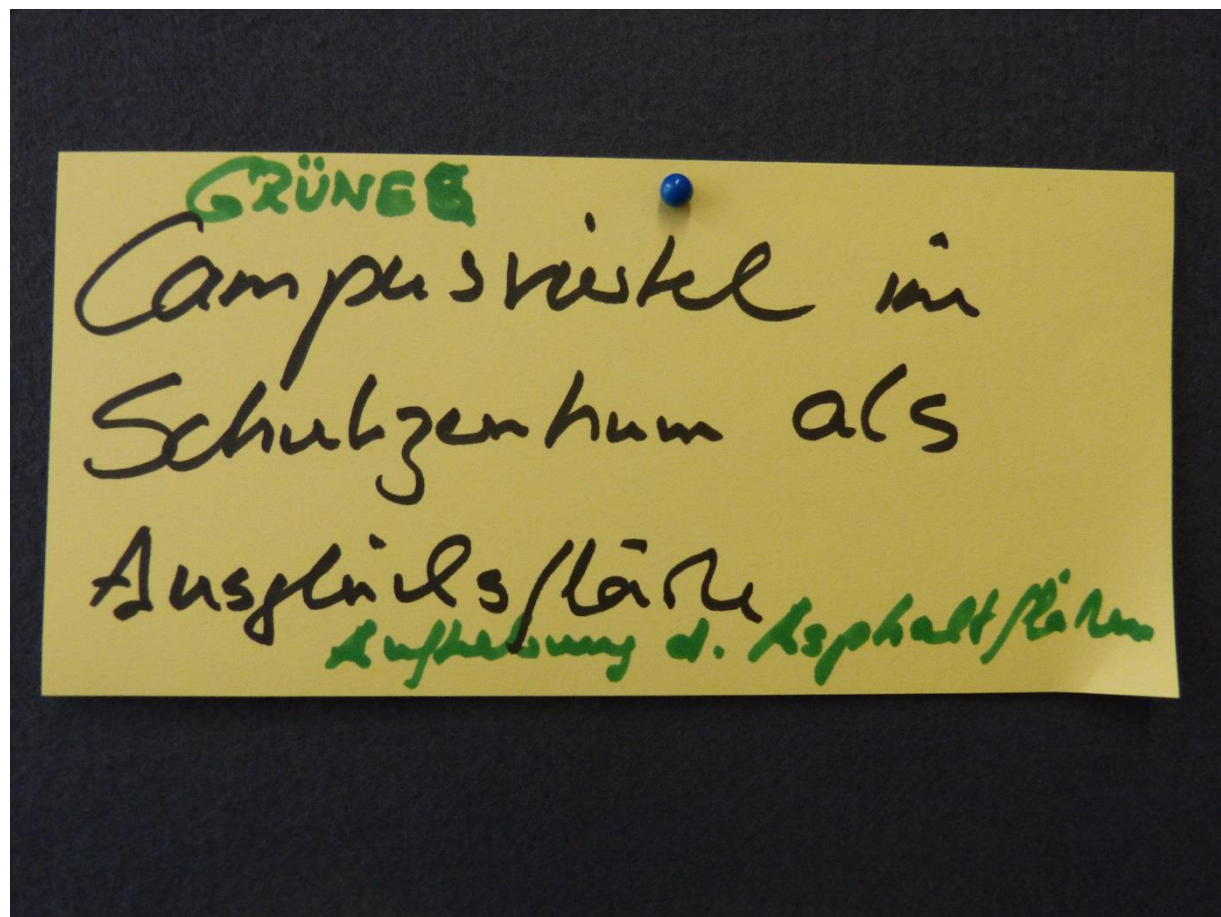 GRÜNES
Campusviertel im
Schulzentrum als
Ausgleichsfläche
d. Asphaltflächen